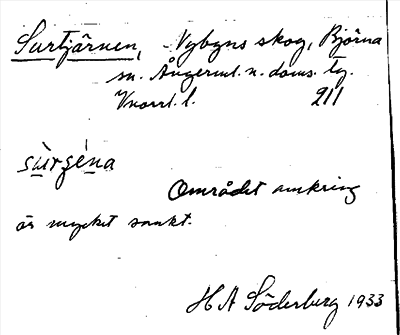 Surtjärnen, Vybyns skog, Björna
sn. Ångerml. n. doms. tg.
Vnorrl. l. 211
sùrgéna
Området omkring
är mycket sankt.
H A Söderberg 1933